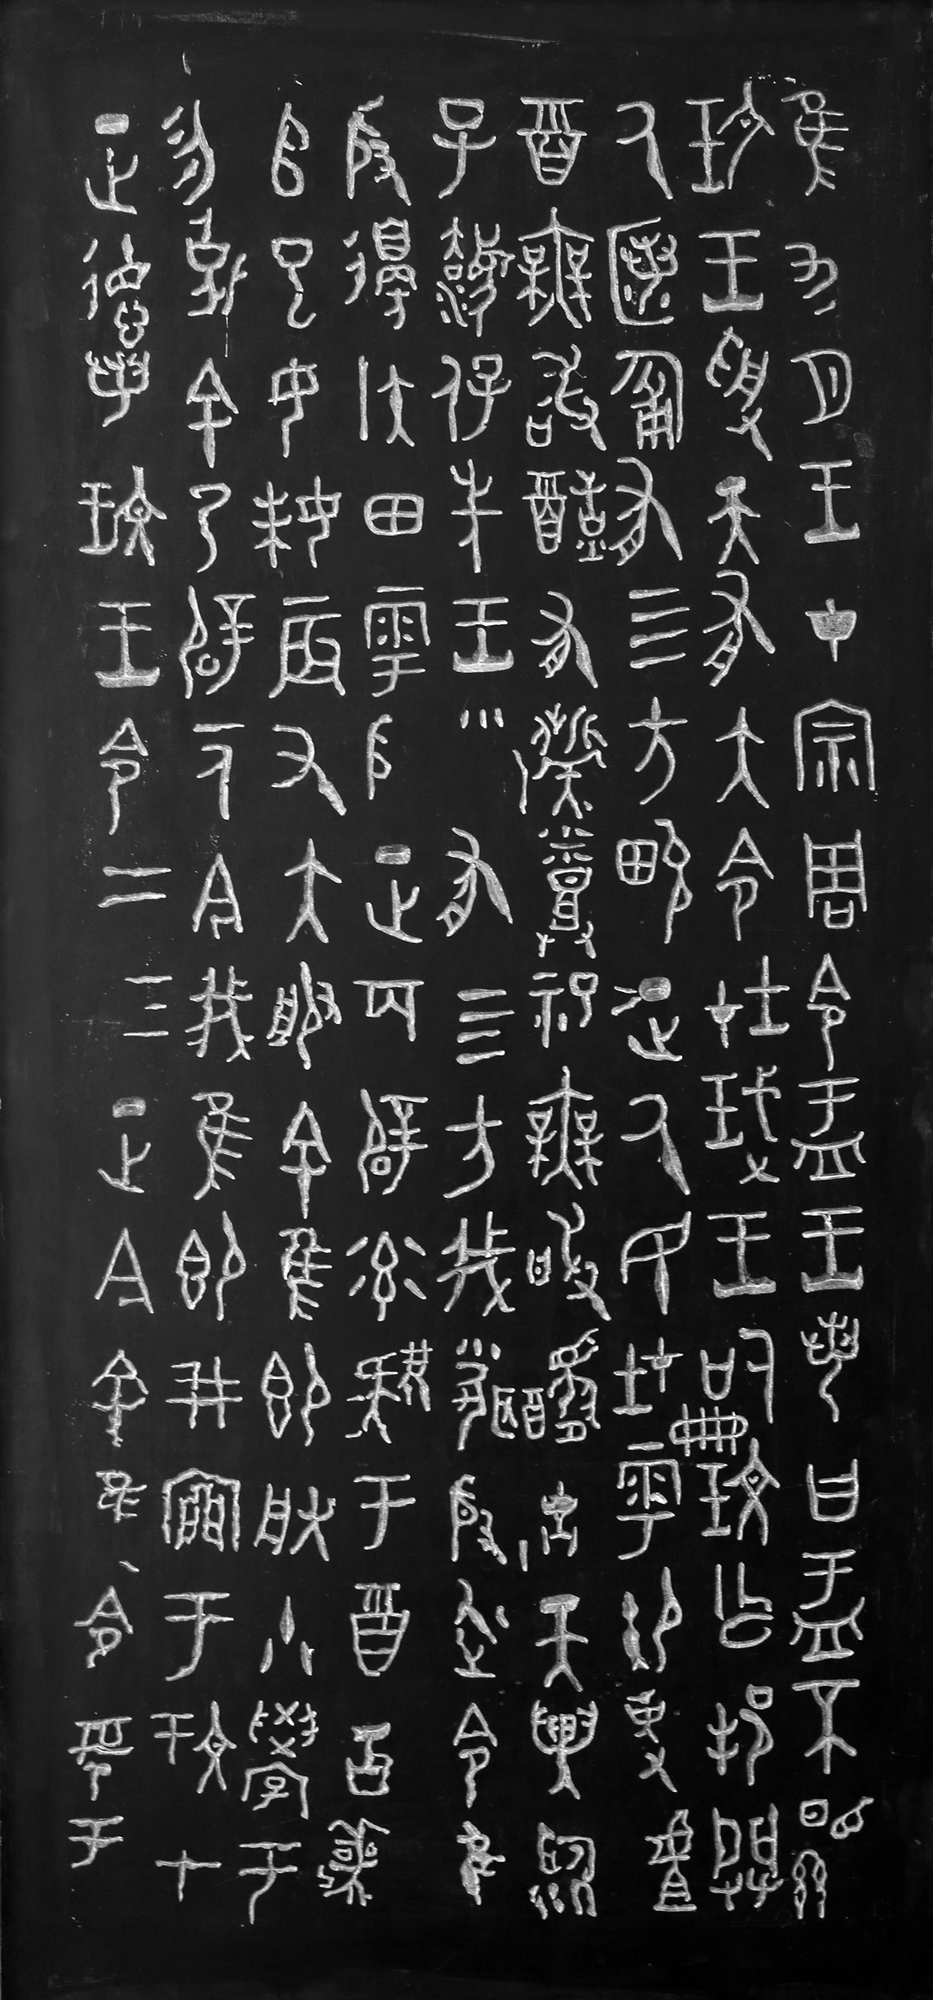 隹九月王才宗周令盂王若曰盂不顯
玟王受天有大令在珷王嗣玟乍邦闢
氒匿匍有四方畯正氒民在雩御事𠭯
酉無敢酖有髭烝祀無敢擾古天異臨
子法保先王有四方我聞殷述令隹
殷邊侯田雩殷正百辟率肄于酉古喪
𠂤已女妹辰又大服余隹即朕小學女
勿剋余乃辟一人今我隹即井廩于玟王
正德若玟王令二三正今余隹令女盂